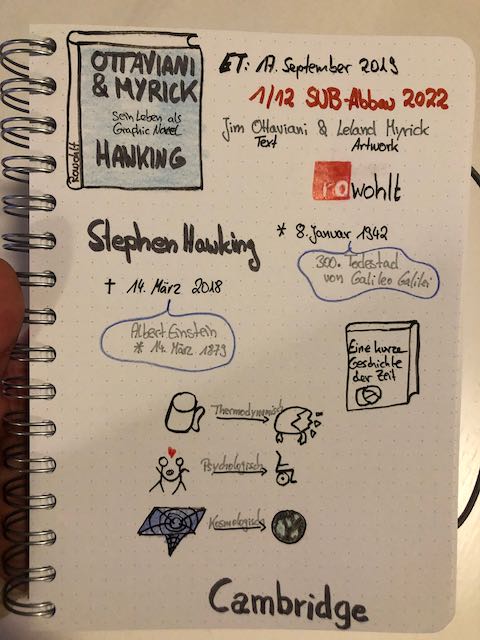 OTTAVIANI
& MYRICK
Sein Leben als
Graphic Novel
HAWKING
Rowohlt
ET: 17. September 2019
1/12 SUB-Abbau 2022
Jim Ottaviani & Leland Myrick
Text Artwork
rowohlt
Stephen Hawking
* 8. Januar 1942
300. Todestad
von Galileo Galilei
† 14. März 2018
Albert Einstein
* 14. März 1879
Eine kurze
Geschichte
der Zeit
Thermodynamisch
Psychologisch
Kosmologisch
Cambridge